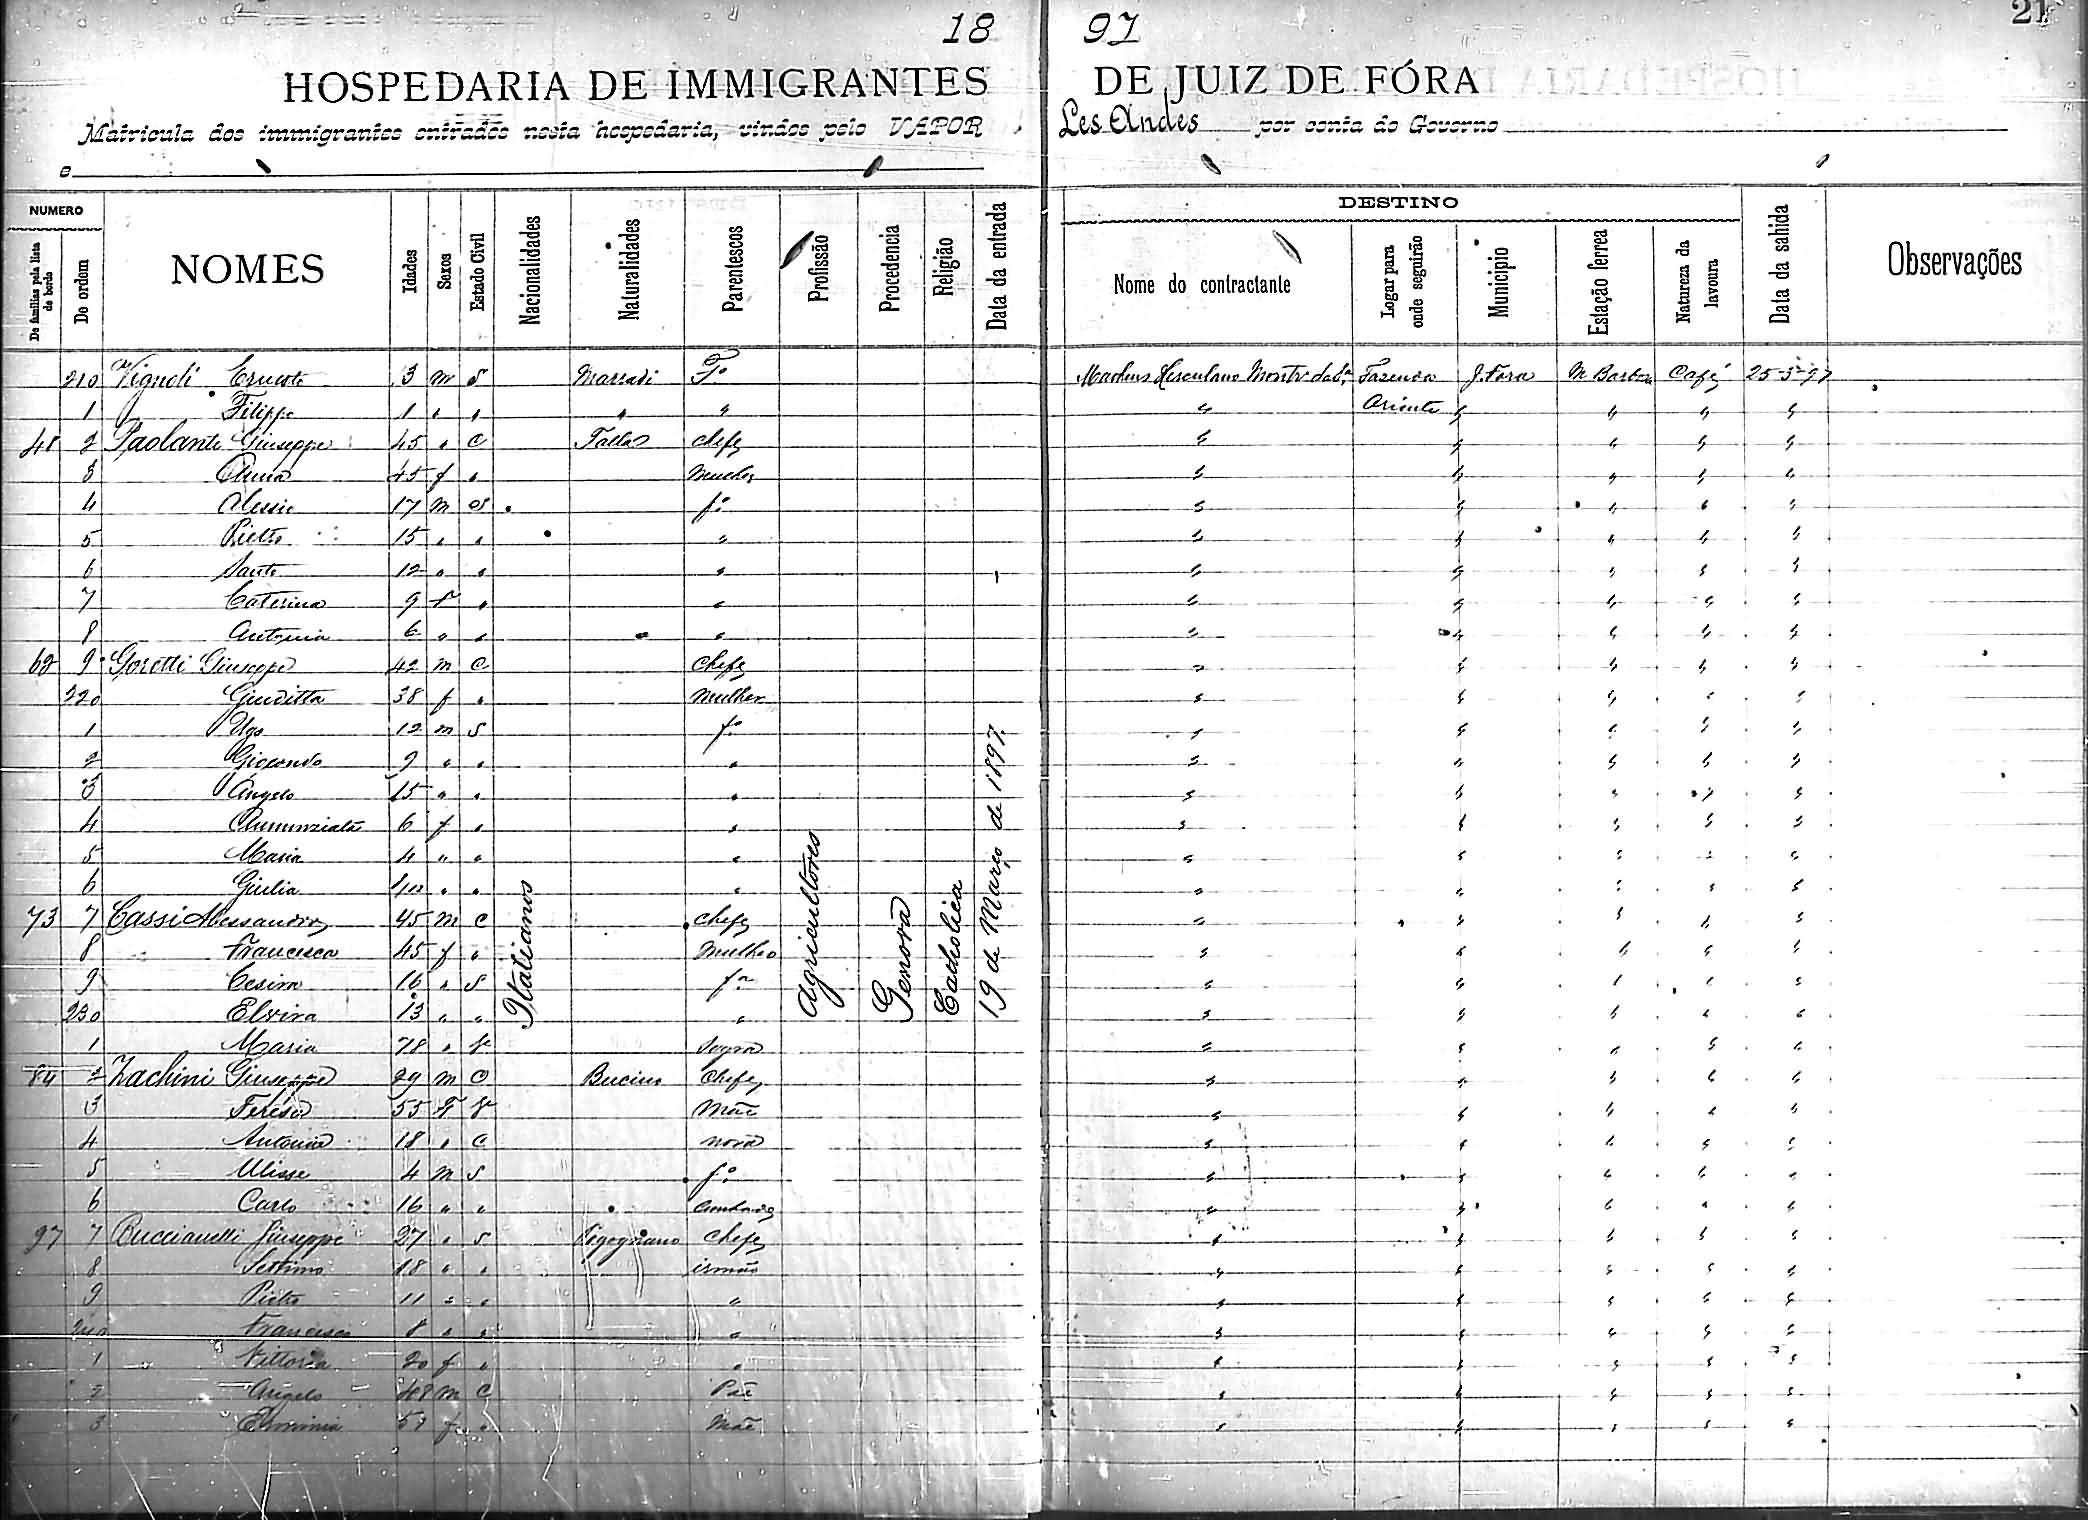 18 97
21
HOSPEDARIA DE IMMIGRANTES DE JUIZ DE FÓRA
Matricula dos immigrantes entrados nesta hospedaria, vindos pelo VAPOR Les Andes por conta do Governo
e
NUMERO
De familias pela lista de bordo
De ordem
NOMES
Idades
Sexos
Estado Civil
Nacionalidades
Naturalidades
Parentescos
Profissão
Procedencia
Religião
Data da entrada
DESTINO
Nome do contractante
Logar para onde seguirão
Municipio
Estação ferrea
Natureza da lavoura
Data da sahida
Observações
210 Vignoli 3 m S Marradi Fº Fazenda J. Fora M Barbosa Café 25-3-97
1 Filippo 1 " " " " " Oriente " " " "
48 2 Paolanti Giuseppe 45 " C chefe " " " " "
3 Anna 45 f " mulher " " " " "
4 Alessio 17 m S fº " " " " "
5 Pietro 15 " " " " " " " "
6 Santi 12 " " " " " " " "
7 Caterina 9 f " " " " " " "
8 Antonia 6 " " " " " " " "
62 9 Goretti Giuseppe 42 m C chefe " " " " "
220 Giuditta 38 f " mulher " " " " "
1 Ugo 12 m S fº " " " " "
2 Giocondo 9 " " " " " " " "
3 Angelo 15 " " " " " " " "
4 Annunziata 6 f " " " " " " "
5 Maria 4 " " " " " " " "
6 Giulia " " " " " " " "
73 7 Cassi Alessandro 45 m C chefe " " " " "
8 Francisca 45 f " mulher " " " " "
9 Cesira 16 " S fª " " " " "
230 Elvira 13 " " " " " " " "
1 Maria 78 " V Sogra " " " " "
84 2 Zachini Giuseppe 29 m C Bucine chefe " " " " "
3 Teresa 55 F V Mãe " " " " "
4 Antonia 18 " C nora " " " " "
5 Ulisse 4 m S fº " " " " "
6 Carlo 16 " " " " " " "
97 7 Buccianelli Giuseppe 27 " S chefe " " " " "
8 Settimo 18 " " irmão " " " " "
9 Pietro 11 " " " " " " " "
240 Francisco 8 " " " " " " " "
1 Vittoria 20 f " " " " " " "
2 Angelo 48 m C Pae " " " " "
3 Erminia f " Mãe " " " " "
Italianos
Agricultores
Genova
Catholica
19 de Março de 1897